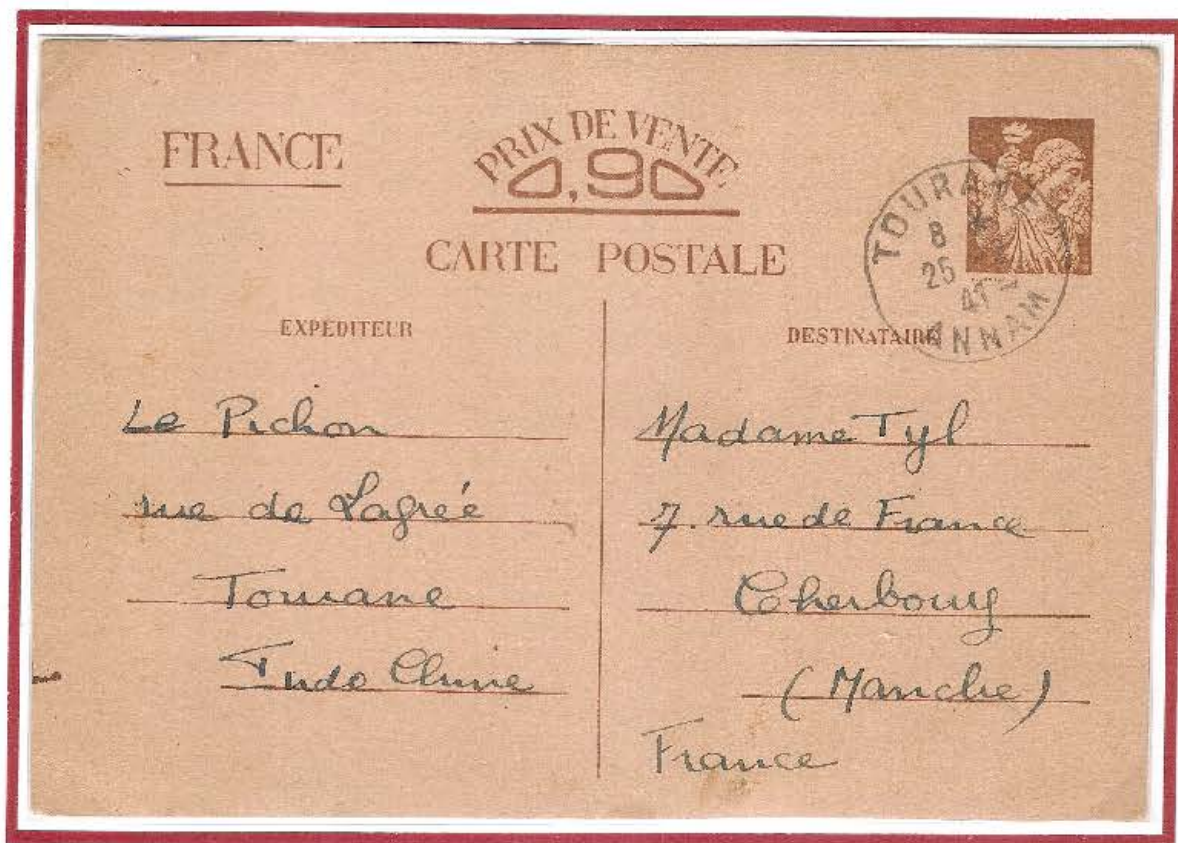 FRANCE
PRIX DE VENTE
0,90
CARTE POSTALE
TOURANE
8
25
41
ANNAM
EXPÉDITEUR
Le Pichon
rue de Lagrée
Tourane
Indo Chine
DESTINATAIRE
Madame Tyl
7. rue de France
Cherbourg
(Manche)
France